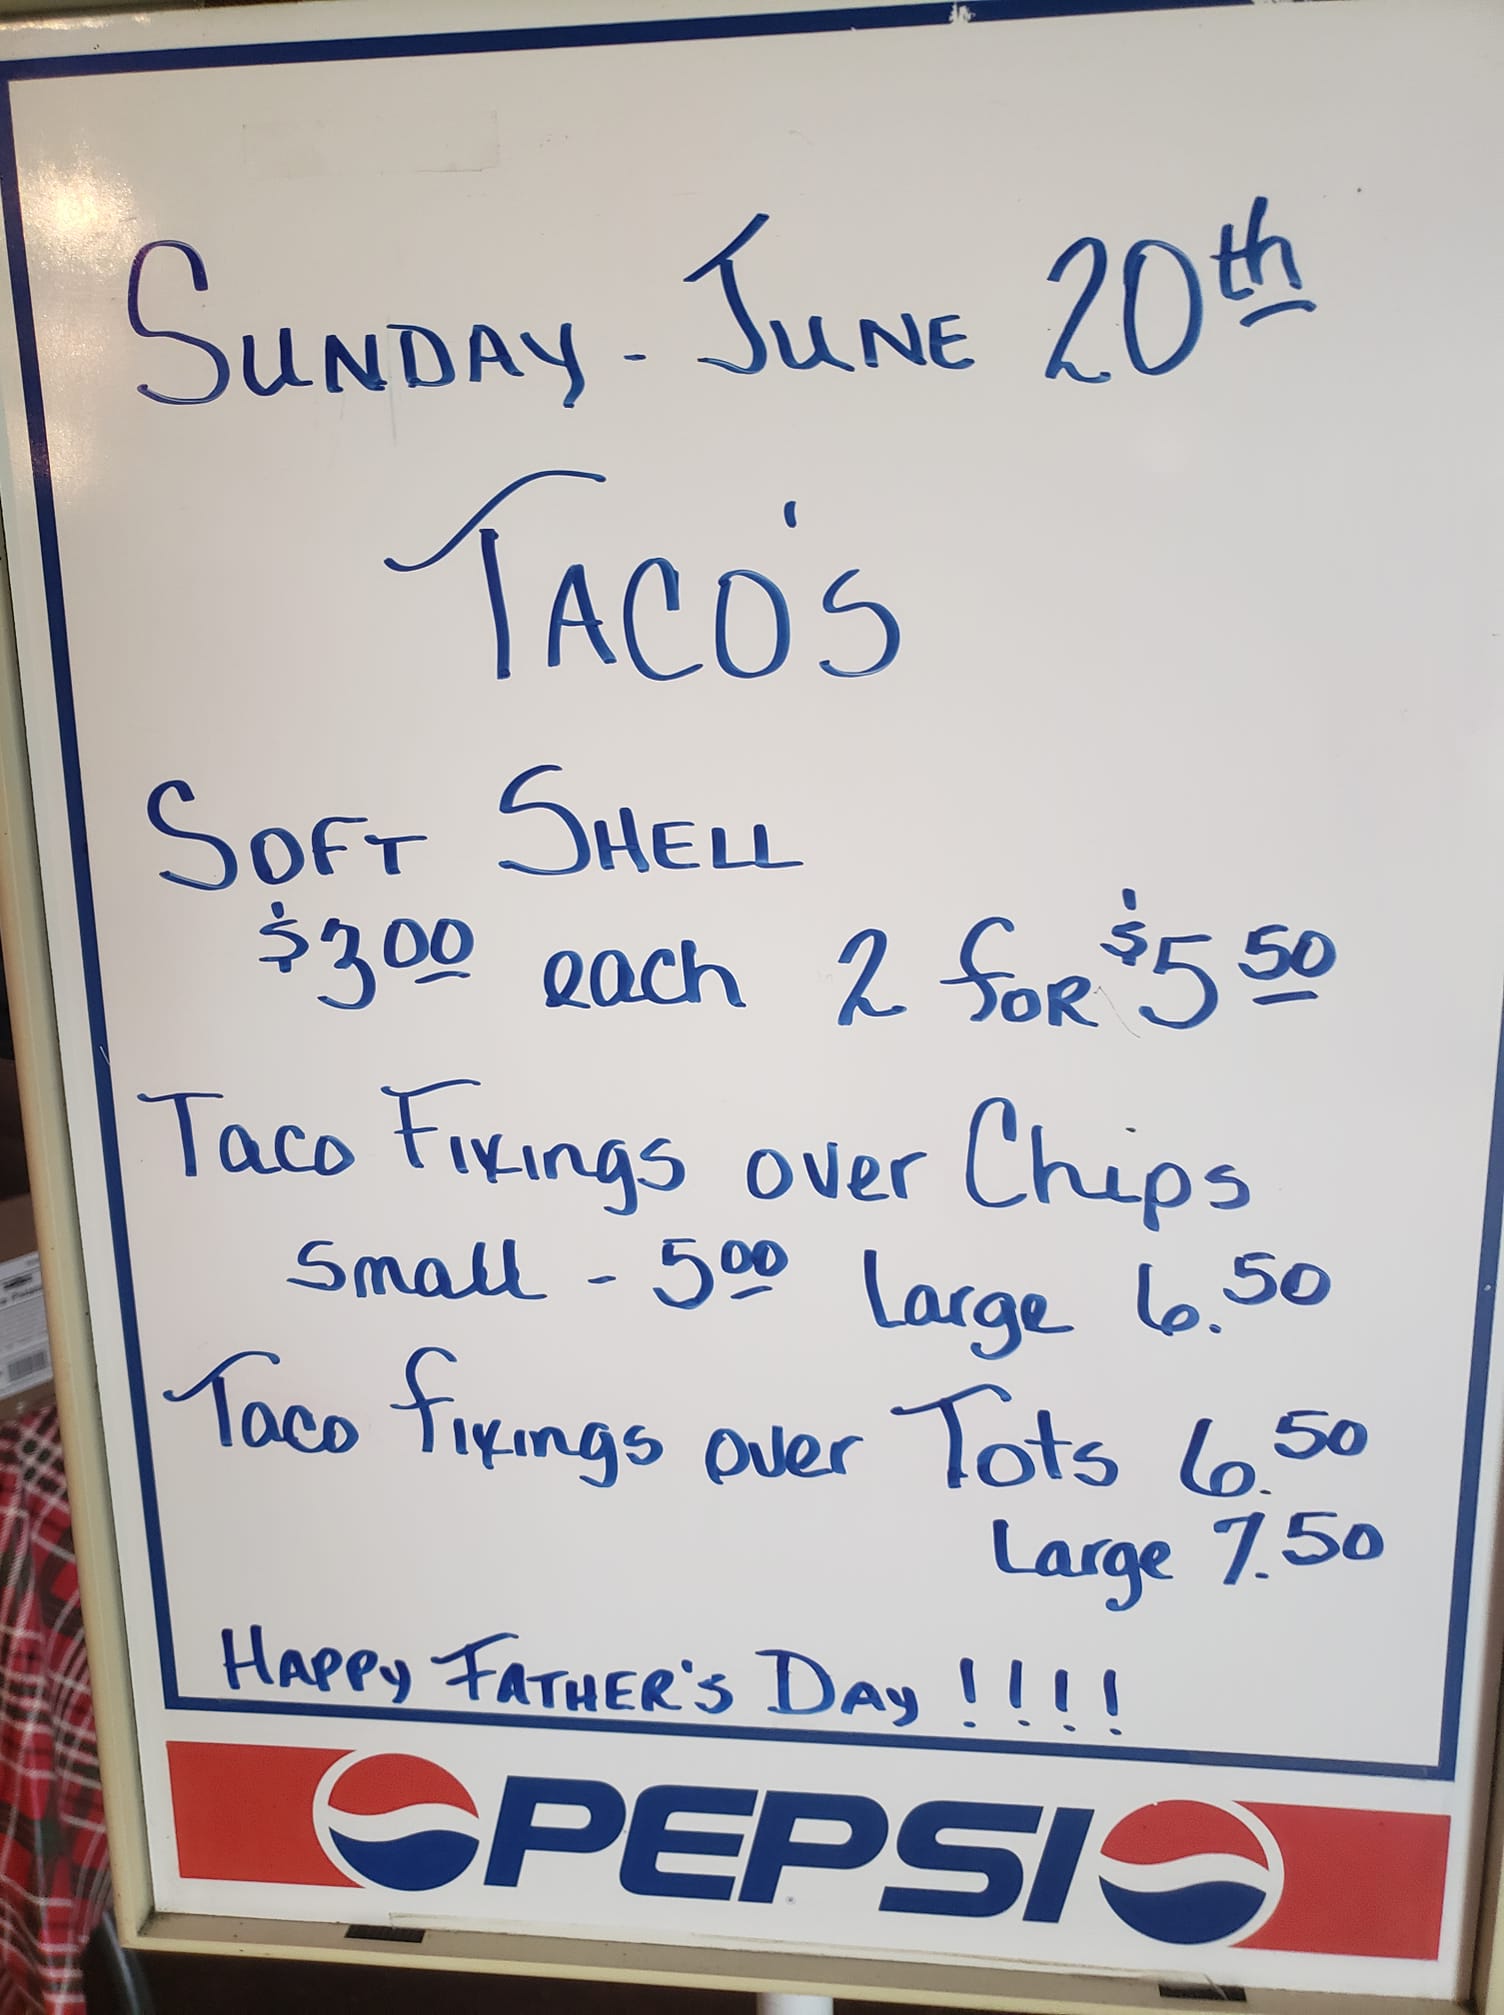 SUNDAY - JUNE 20th
TACO'S
SOFT SHELL
$3.00 each 2 for $5.50
Taco Fixings over Chips
small - 5.00 Large 6.50
Taco fixings over Tots 6.50
Large 7.50
HAPPY FATHER'S DAY !!!!
PEPSI